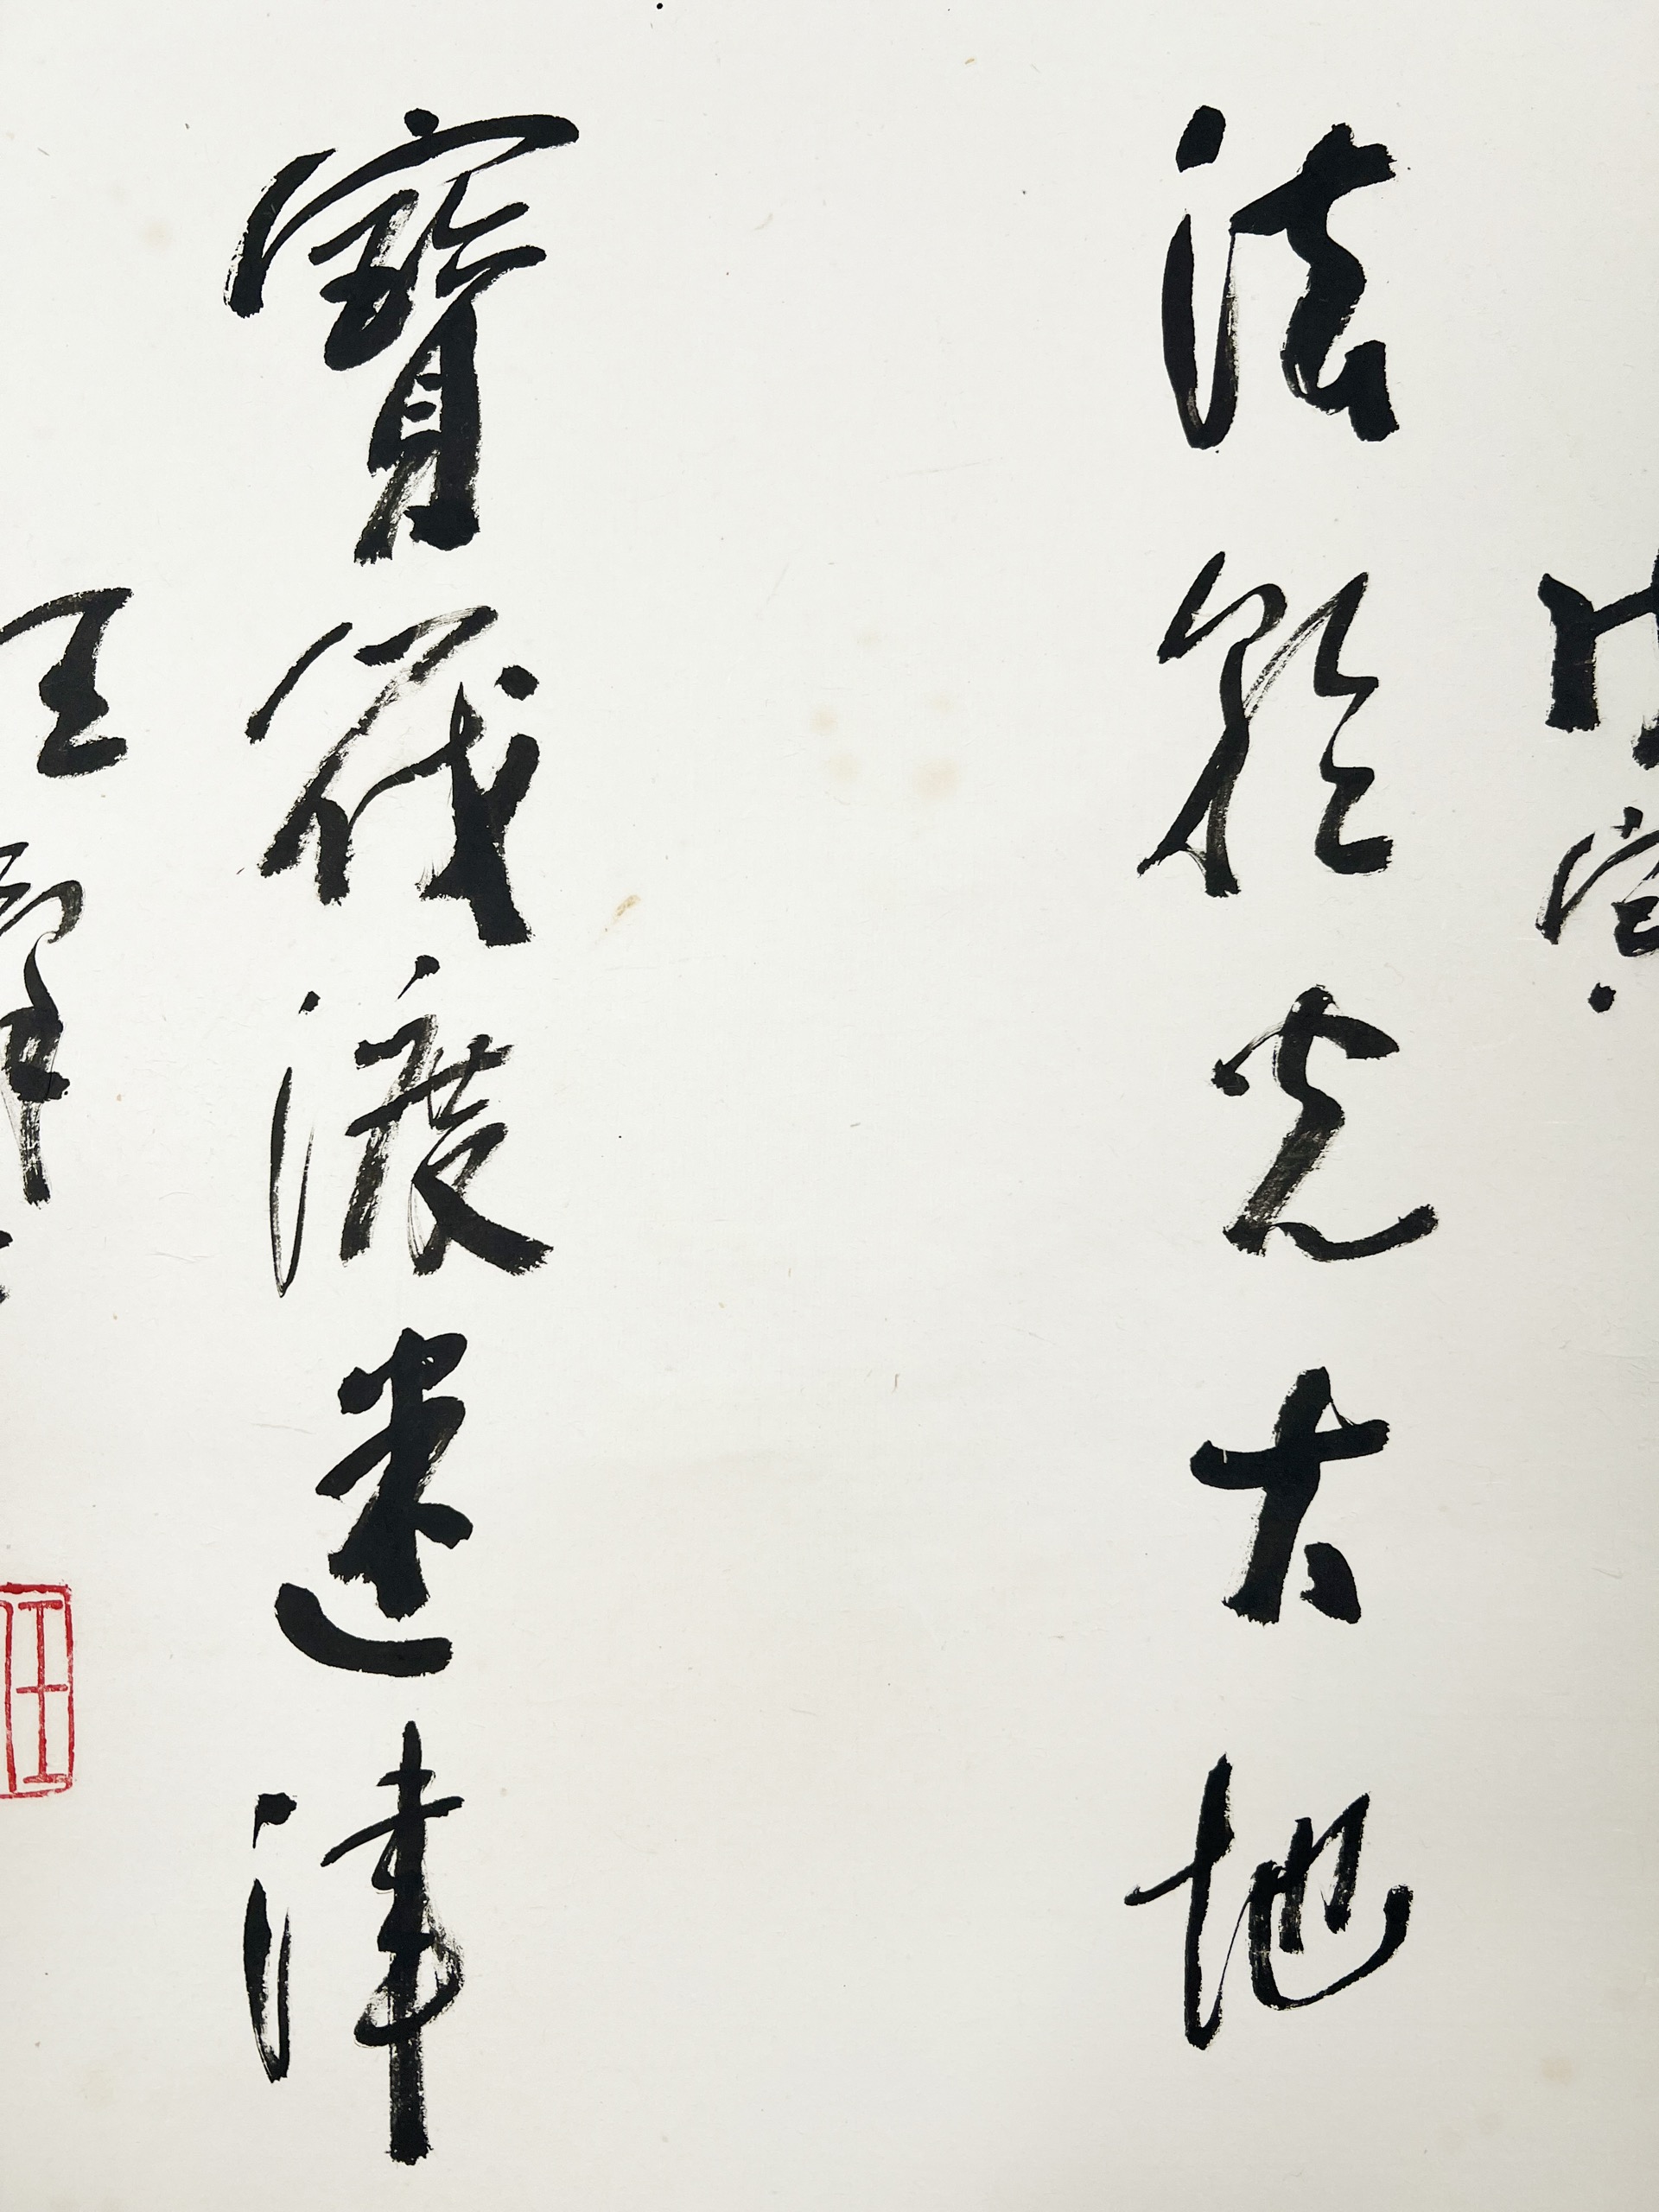 法輪光大地
寶筏渡迷津
王
王